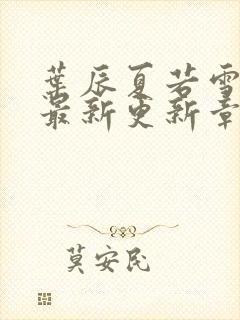 葉辰夏若雪
最新更新章
莫安民